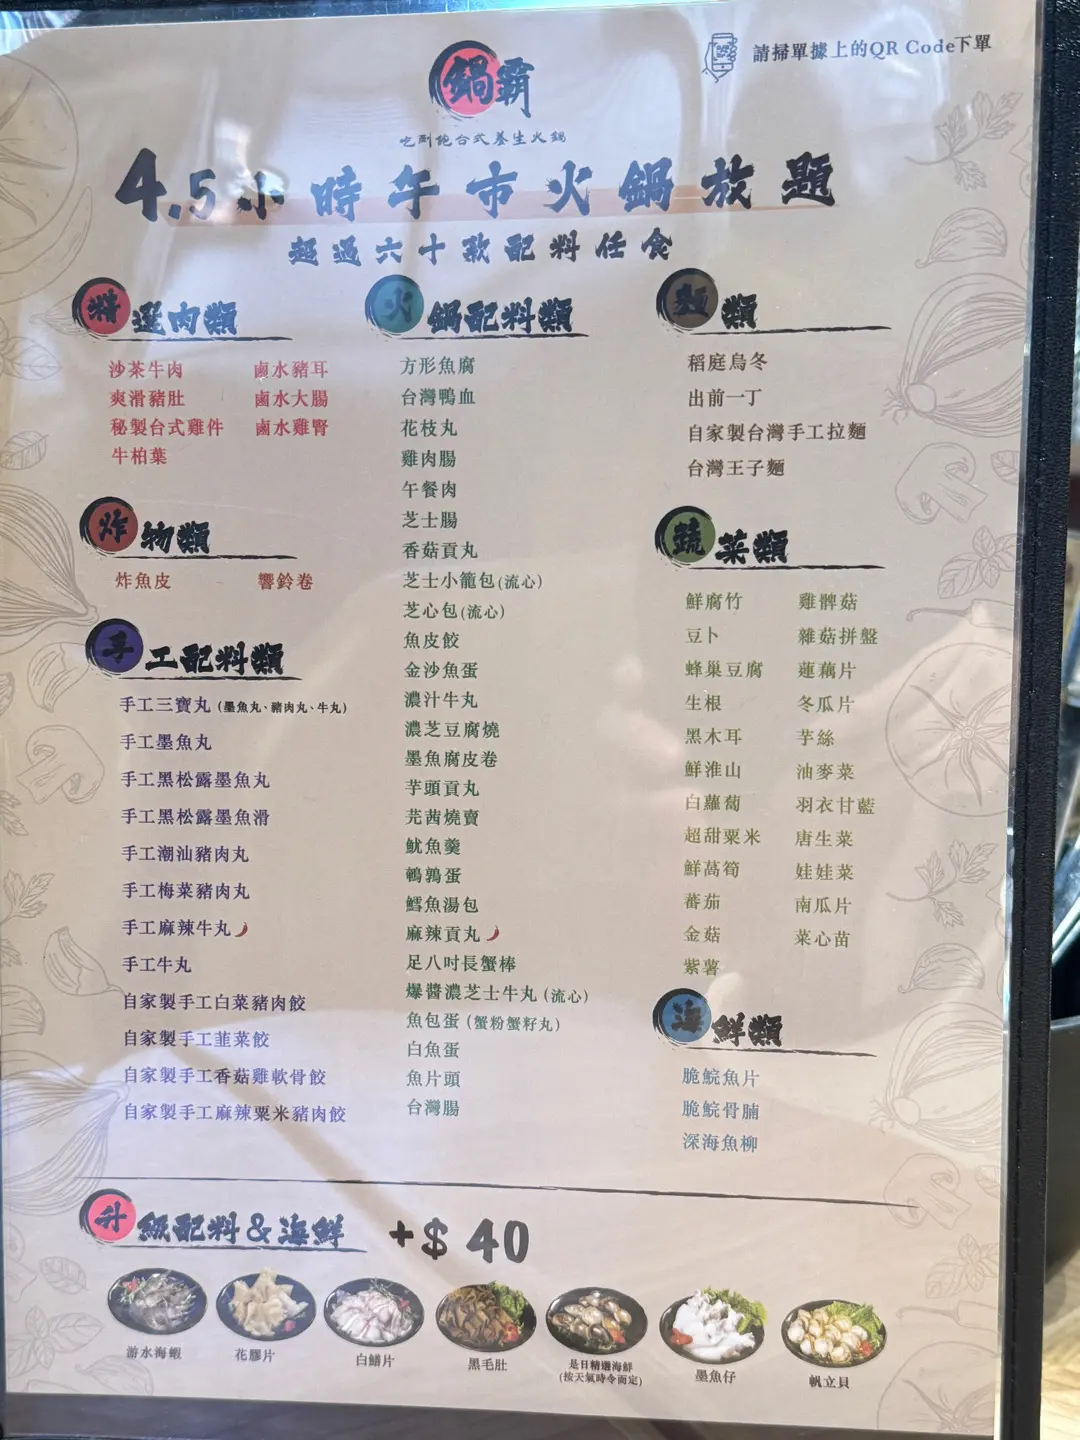 請掃單據上的QR Code下單
鍋霸
吃到飽台式養生火鍋
4.5小時午市火鍋放題
超過六十款配料任食
精選肉類
沙茶牛肉
爽滑豬肚
秘製台式雞件
牛柏葉
鹵水豬耳
鹵水大腸
鹵水雞腎
炸物類
炸魚皮
響鈴卷
手工配料類
手工三寶丸（墨魚丸、豬肉丸、牛丸）
手工墨魚丸
手工黑松露墨魚丸
手工黑松露墨魚滑
手工潮汕豬肉丸
手工梅菜豬肉丸
手工麻辣牛丸
手工牛丸
自家製手工白菜豬肉餃
自家製手工韮菜餃
自家製手工香菇雞軟骨餃
自家製手工麻辣粟米豬肉餃
火鍋配料類
方形魚腐
台灣鴨血
花枝丸
雞肉腸
午餐肉
芝士腸
香菇貢丸
芝士小籠包(流心)
芝心包(流心)
魚皮餃
金沙魚蛋
濃汁牛丸
濃芝豆腐燒
墨魚腐皮卷
芋頭貢丸
芫茜燒賣
魷魚羹
鵪鶉蛋
鱈魚湯包
麻辣貢丸
足八吋長蟹棒
爆醬濃芝士牛丸（流心）
魚包蛋（蟹粉蟹籽丸）
白魚蛋
魚片頭
台灣腸
麵類
稻庭烏冬
出前一丁
自家製台灣手工拉麵
台灣王子麵
蔬菜類
鮮腐竹
豆卜
蜂巢豆腐
生根
黑木耳
鮮淮山
白蘿蔔
超甜粟米
鮮萵筍
蕃茄
金菇
紫薯
雞髀菇
雜菇拼盤
蓮藕片
冬瓜片
芋絲
油麥菜
羽衣甘藍
唐生菜
娃娃菜
南瓜片
菜心苗
海鮮類
脆鯇魚片
脆鯇骨腩
深海魚柳
升級配料&海鮮 +$40
游水海蝦
花膠片
白鱔片
黑毛肚
是日精選海鮮
(按天氣時令而定)
墨魚仔
帆立貝